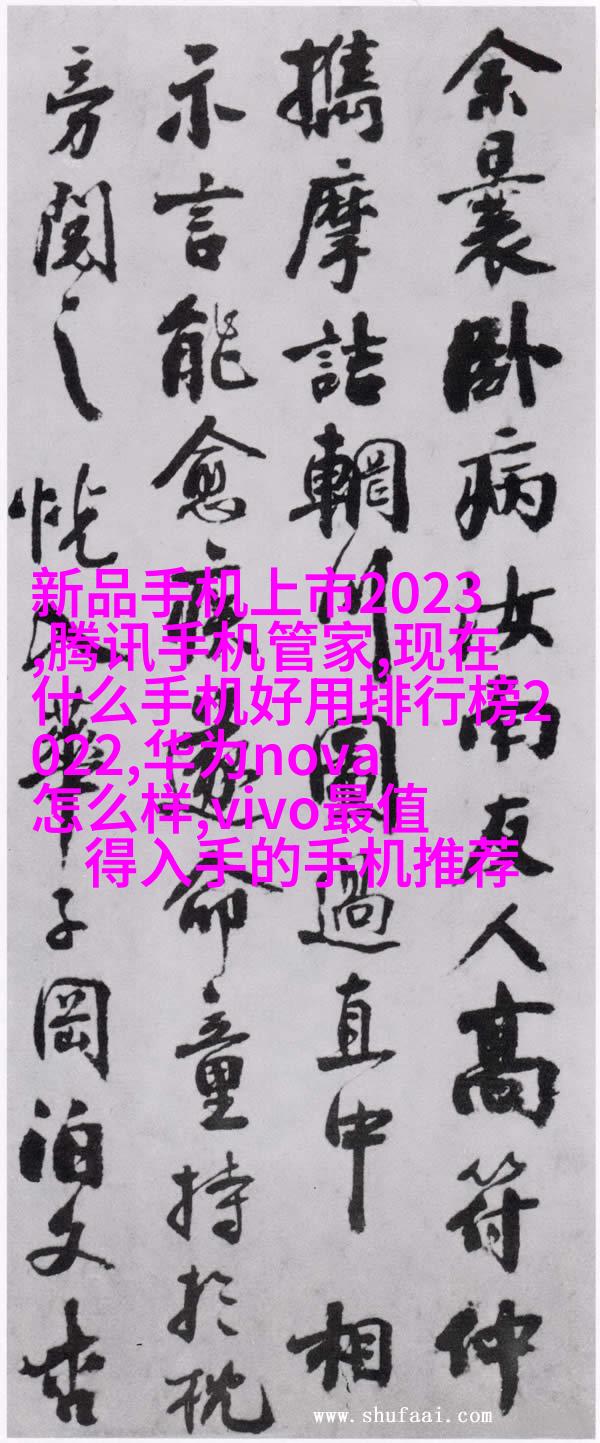 余曩卧病汝南友人高符仲
攜摩詰輞川圖過直中相
示言能愈疾遂命童持於枕
旁閱之恍入華子岡泊文杏
新品手机上市2023
,腾讯手机管家,现在
什么手机好用排行榜2
022,华为nova
怎么样,vivo最值
得入手的手机推荐
www.shufaai.com